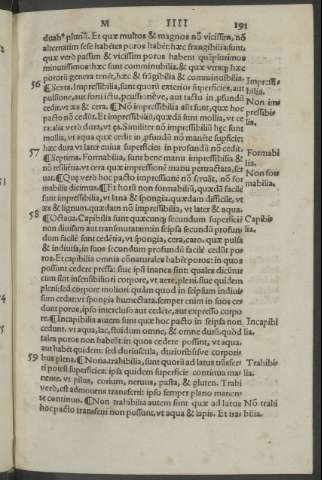 M IIII 191
duab9 plurimũ. Et quæ multos & magnos nõ vicissim, nõ
alternatim sese habẽtes poros habẽt: hæc frangibilia sunt.
quæ verò passim & vicissim poros habent quàplurimos
minutissimos: hæc sunt comminuibilia. & quæ vtraqʒ hæc
pororũ genera tenẽt, hæc & frãgibilia & comminuibilia.
56 ¶Sexta. Impressibilia, sunt quorũ exterior superficies, aut Impressi-
pulsione, aut forti ictu, pcussionéve, aut tactu in pfundũ bilia.
cedit. vt æs & cera. ¶Nõ impressibilia aũt sunt, quæ hoc Non im-
pacto nõ cedũt. Et impressibiliũ, quædã sunt mollia, vt ce pressibi-
ra: alia verò dura, vt çs. Similiter nõ impressibiliũ hęc sunt lia.
mollia, vt aqua quæ cedit in pfundũ nõ manẽte supficie:
hæc dura vt later cuius superficies in profundũ nõ cedit.
57 ¶Septima. Formabilia, sunt benc manu impressibilia & Formabi
nõ resilẽtia. vt cera quæ impressionẽ manu pertractata, ser lia.
uat. ¶Quę verò hoc pacto impressionẽ nõ seruãt, nõ for Non for-
mabilia dicimus. ¶Et horũ non formabiliũ, quædã facilè mabilia.
sunt impressibilia, vt lana & spongia. quædam difficile, vt
æs & lignum. quædam nõ impressibilia, vt later & aqua.
58 ¶Octaua. Capibilia sunt quæcunqʒ secundum superficiẽ Capibi-
non diuisam aut transmutatam in seipsa secundũ profun lia.
dum facilè sunt cedẽtia, vt spongia, cera, caro. quæ pulsa
& indiuisa, in suos secundum profundũ facilè cedũt po-
ros. Et capibilia omnia cõnaturales habẽt poros: in quos
possunt cedere pressa: siue ipsi inanes sint: quales dicũtur
cum sint insensibiliori corpore, vt aere, pleni. siue quidem
pleni: sed corpore moliori quàm quod in seipsum indiui-
sum cedat: vt spongia humectata. semper enim in suos ce-
dunt poros, ipso interdum vacuefacto, aut expresso corpo
re. ¶Incapibilia autem sunt quæ hoc pacto in seipsa non Incapibi
cedunt. vt aqua, lac, fluidum omne, & omne durũ. quòd lia.
tales poros non habeãt: quos in ipsis cedere possunt, vt aqua.
aut habẽt quidem: sed durioribus, durioribúsve corporis
59 bus plena. ¶Nona. trahibilia, sunt quorũ ad latus trãsser Trahibi-
ri potest superficies: ipsa quidem superficie continua ma- lia.
nente. vt pilus, corium, neruus, pasta, & gluten. Trahi
verò, est ad mouens transferri: ipso semper plano manen-
te continuo. ¶Non trahibilia autem sunt quæ ad latus Nõ trahi
hoc pacto transferri non possunt, vt aqua & lapis. Et tra- bilia.